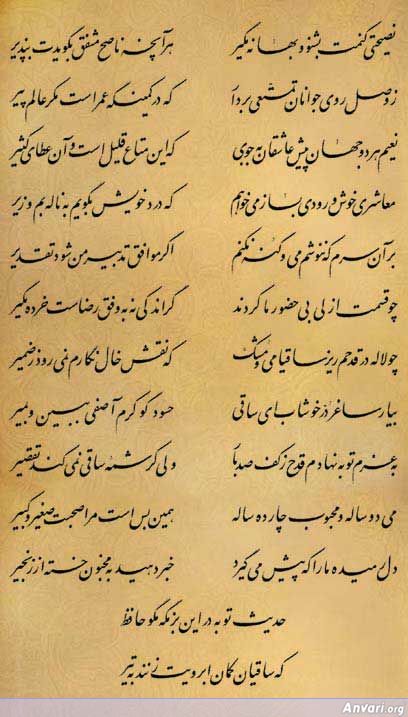 نصیحتی کنمت بشنو و بهانه مگیر هر آنچه ناصح مشفق بگویدت بپذیر
ز وصل روی جوانان تمتعی بردار که در کمینگه عمر است مکر عالم پیر
نعیم هر دو جهان پیش عاشقان به جوی که این متاع قلیل است و آن عطای کثیر
معاشری خوش و رودی بساز می‌خواهم که درد خویش بگویم به ناله بم و زیر
بر آن سرم که ننوشم می و گنه نکنم اگر موافق تدبیر من شود تقدیر
چو قسمت ازلی بی حضور ما کردند گر اندکی نه به وفق رضاست خرده مگیر
چو لاله در قدحم ریز ساقیا می و مشک که نقش خال نگارم نمی‌رود ز ضمیر
بیار ساغر در خوشاب ای ساقی حسود گو کرم آصفی ببین و بمیر
به عزم توبه نهادم قدح ز کف صد بار ولی کرشمه ساقی نمی‌کند تقصیر
می دو ساله و محبوب چارده ساله همین بس است مرا صحبت صغیر و کبیر
دل رمیده ما را که پیش می‌گیرد خبر دهید به مجنون خسته از زنجیر
حدیث توبه در این بزمگه مگو حافظ
که ساقیان کمان ابرویت زنند به تیر
Anvari.org